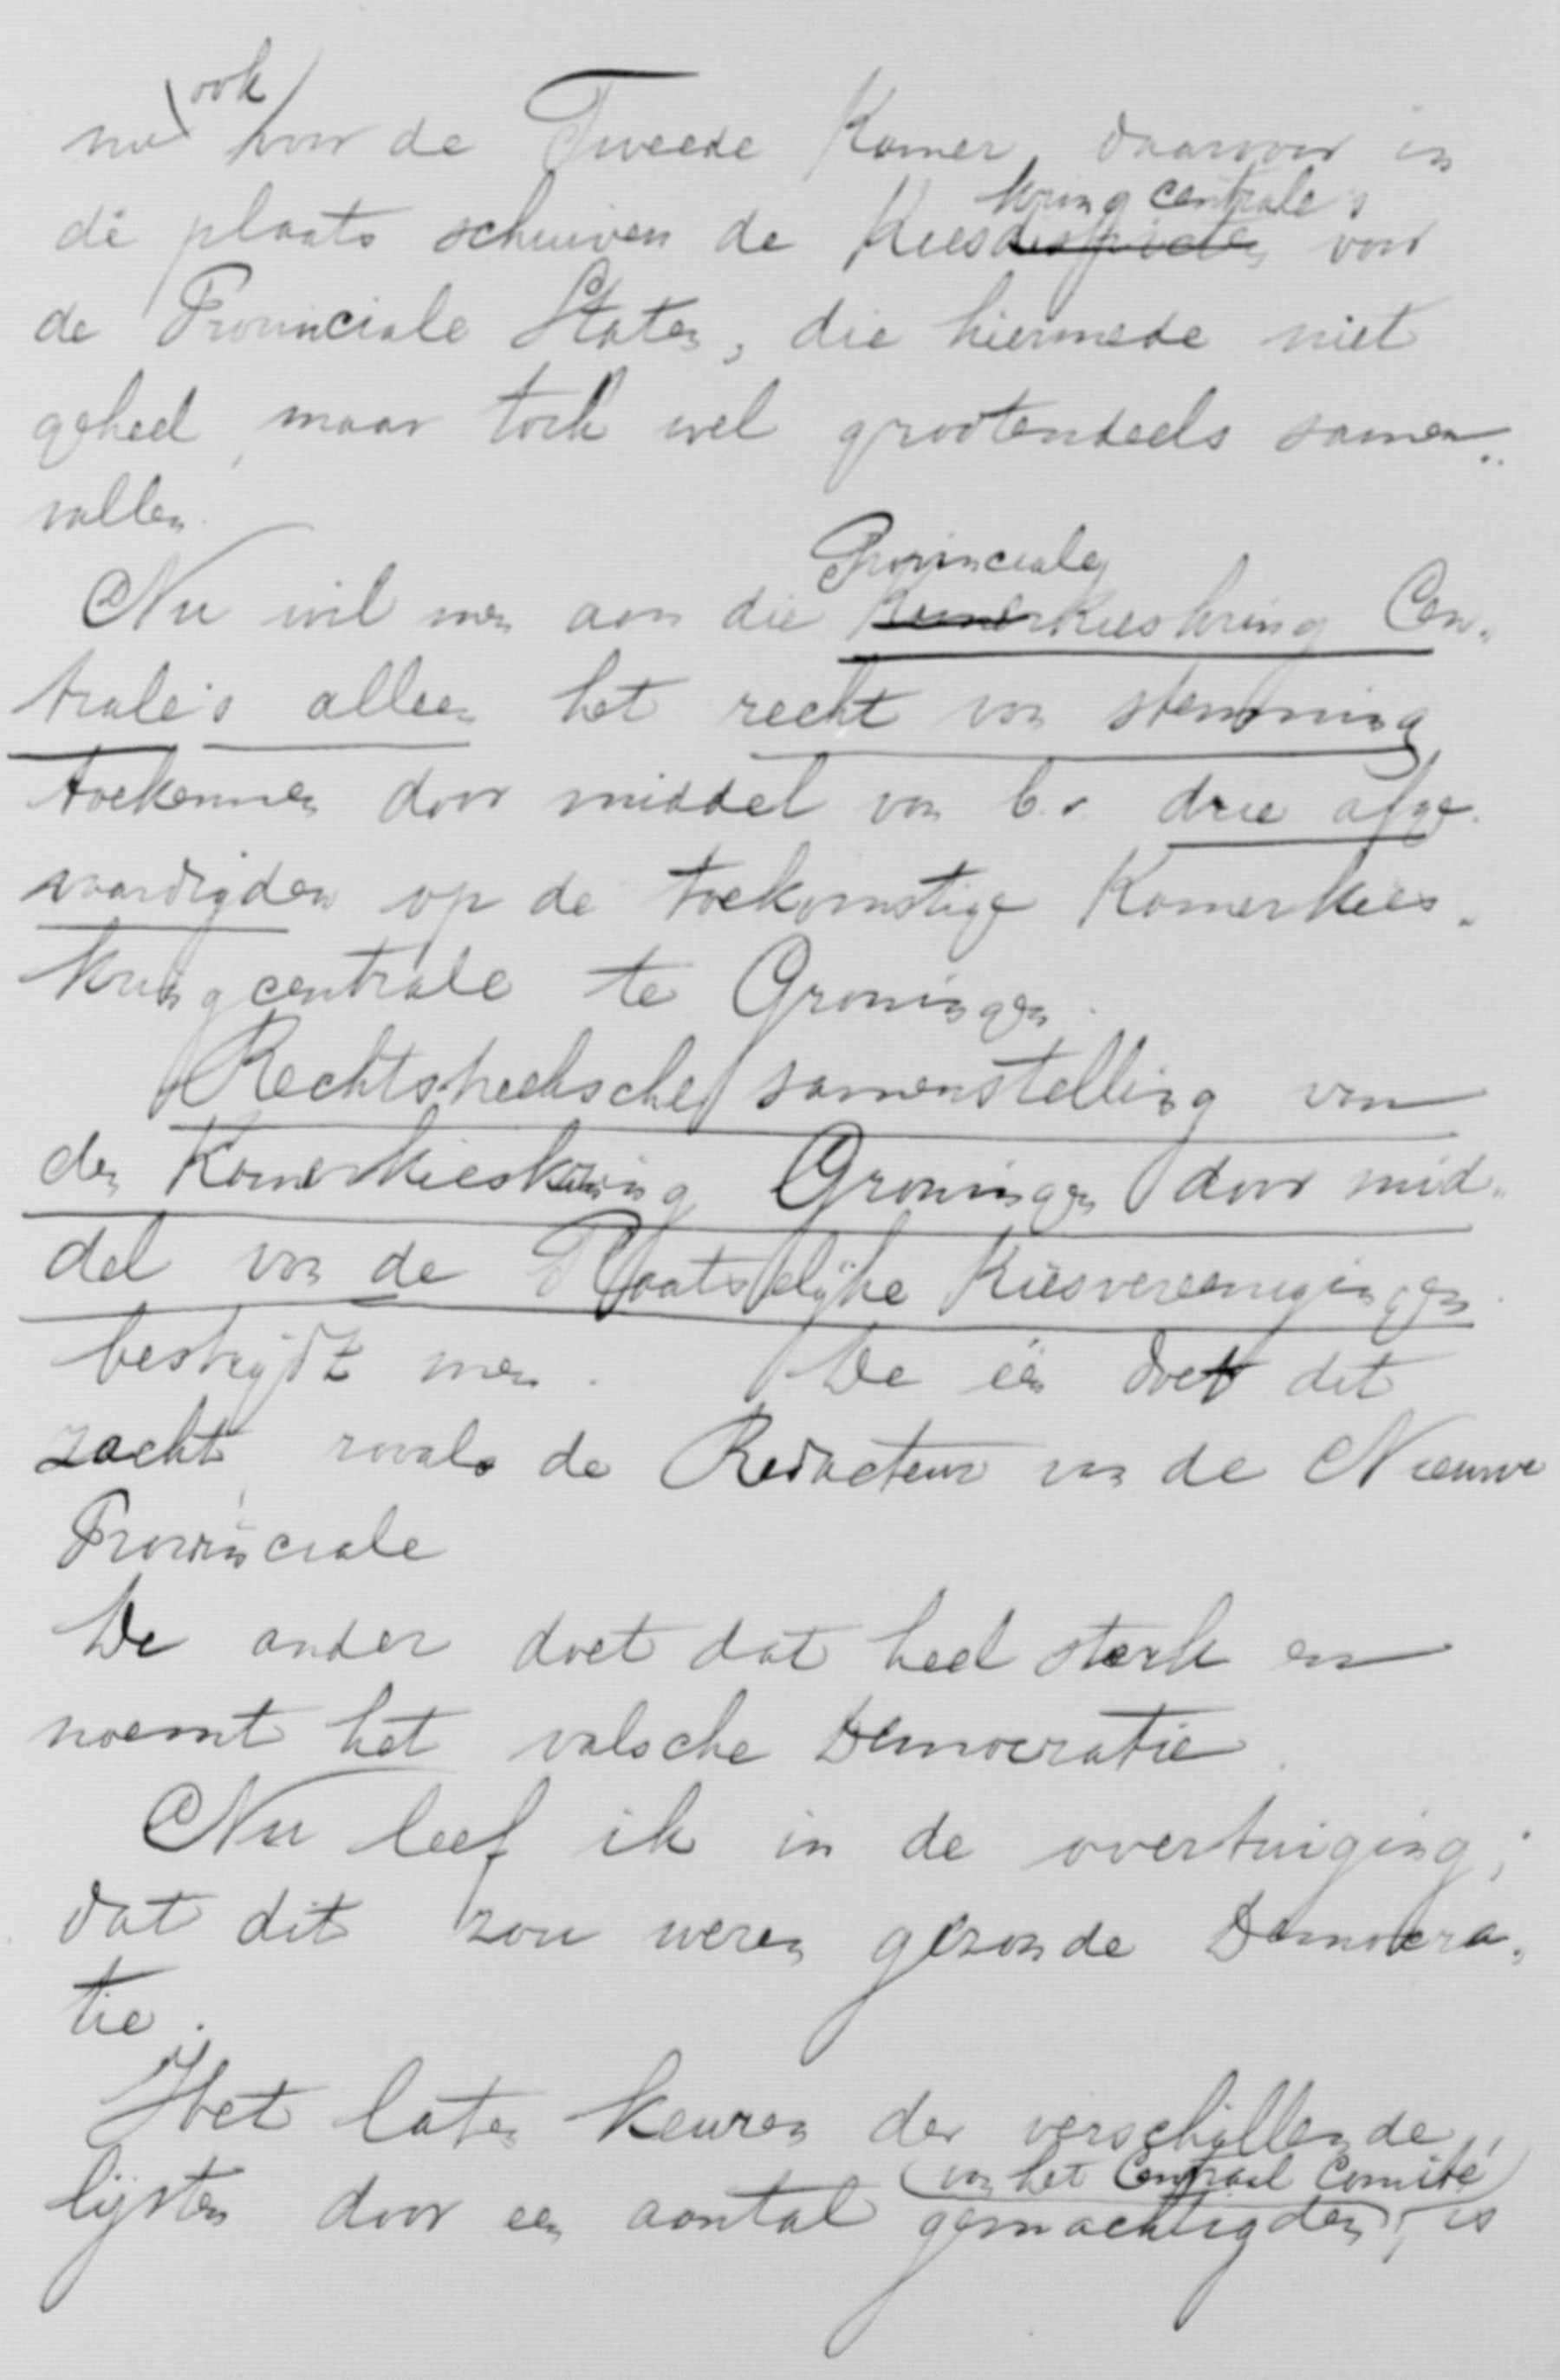 ook
nu voor de Tweede Kamer, daarvoor in
kring centrale's
de plaats schuiven de Kiesdistricten voor
de Provinciale Staten, die hiermede niet
geheel, maar toch wel grootendeels samen-
vallen.
Provinciale
Nu wil men aan die Kamerkieskring Cen-
trale's alleen het recht van stemming
toekennen door middel van b.v. drie afge-
vaardigden op de toekomstige Kamerkies-
kringcentrale te Groningen.
Rechtstreeksche samenstelling van
den Kamerkieskring Groningen door mid-
del van de Plaatselijke Kiesvereenigingen
bestrijdt men. De één doet dit
zacht, zooals de Redacteur van de Nieuwe
Provinciale
De ander doet dat heel sterk en
noemt het valsche Democratie.
Nu leef ik in de overtuiging;
dat dit zou wezen gezonde Democra-
tie.
Het laten keuren der verschillende
van het Centraal Comité
lijsten door een aantal gemachtigden, is